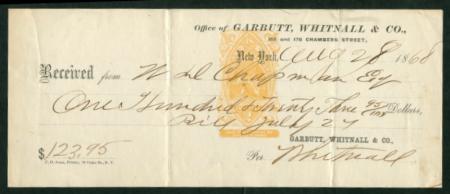 Office of GARBUTT, WHITNALL & CO.,
168 and 170 CHAMBERS STREET,
New York, Aug 28 1868
Received from W D Chapman Esq
One Hundred & Twenty Three 95/100 Dollars,
Bill July 27
GARBUTT, WHITNALL & CO.
$123.95
Per Whitnall